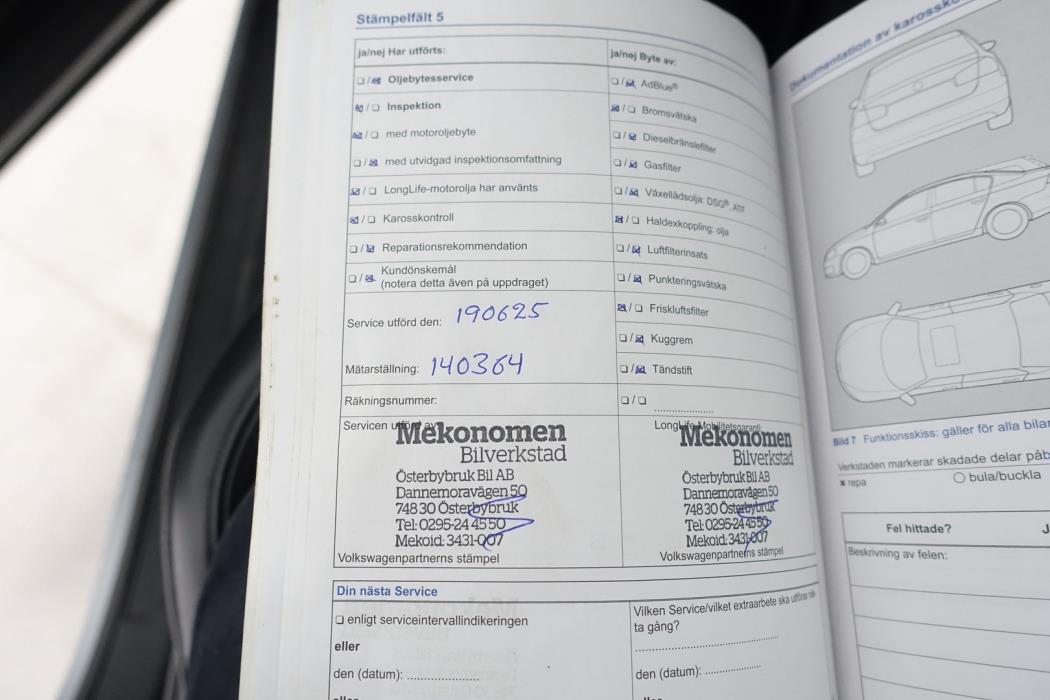 Stämpelfält 5
ja/nej Har utförts:
Oljebytesservice
Inspektion
med motoroljebyte
med utvidgad inspektionsomfattning
LongLife-motorolja har använts
Karosskontroll
Reparationsrekommendation
Kundönskemål
(notera detta även på uppdraget)
Service utförd den: 190625
Mätarställning: 140364
Räkningsnummer:
Servicen utförd av:
Mekonomen
Bilverkstad
Österbybruk Bil AB
Dannemoravägen 50
748 30 Österbybruk
Tel: 0295-244550
Mekoid: 3431-007
Volkswagenpartnerns stämpel
ja/nej Byte av:
AdBlue®
Bromsvätska
Dieselbränslefilter
Gasfilter
Växellådsolja: DSG®, ATF
Haldexkoppling: olja
Luftfilterinsats
Punkteringsvätska
Friskluftsfilter
Kuggrem
Tändstift
LongLife Mobilitetsgaranti:
Mekonomen
Bilverkstad
Österbybruk Bil AB
Dannemoravägen 50
748 30 Österbybruk
Tel: 0295-244550
Mekoid: 3431-007
Volkswagenpartnerns stämpel
Din nästa Service
enligt serviceintervallindikeringen
eller
den (datum):
Vilken Service/vilket extraarbete ska utföras
ta gång?
den (datum):
Dokumentation av
Bild 7 Funktionsskiss: gäller för alla bilar
Verkstaden markerar skadade delar på
× repa
bula/buckla
Fel hittade?
J
Beskrivning av felen: